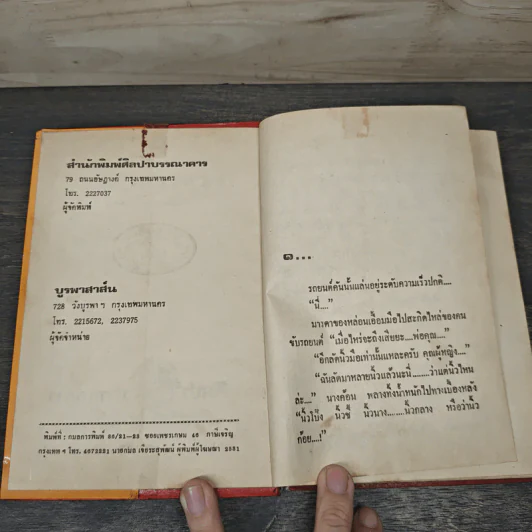 สำนักพิมพ์ศิลปาบรรณาคาร
79 ถนนอัษฎางค์ กรุงเทพมหานคร
โทร. 2227037
ผู้จัดพิมพ์
บูรพาสาส์น
728 วังบูรพา ฯ กรุงเทพมหานคร
โทร. 2215672, 2237975
ผู้จัดจำหน่าย
พิมพ์ที่ : กมลการพิมพ์ ซอยเพชรเกษม 40 ภาษีเจริญ
กรุงเทพ ฯ โทร. 4672221 นายกมล ผู้พิมพ์ผู้โฆษณา 2521
๑...
รถยนต์คันนั้นแล่นอยู่ระดับความเร็วปกติ....
"นี่...."
มารดาของหล่อนเอื้อมมือไปสะกิดไหล่ของคน
ขับรถยนต์ "เมื่อไหร่จะถึงเสียยะ....พ่อคุณ...."
"อีกลัดนิ้วมือเท่านั้นแหละครับ คุณผู้หญิง...."
"ฉันลัดมาหลายนิ้วแล้วนะนี่........ว่าแต่นิ้วไหน
ล่ะ...." นางค้อน พลางทิ้งน้ำหนักไปทางเบื้องหลัง
"นิ้วโป้ง นิ้วชี้ นิ้วนาง.......นิ้วกลาง หรือว่านิ้ว
ก้อย....!"